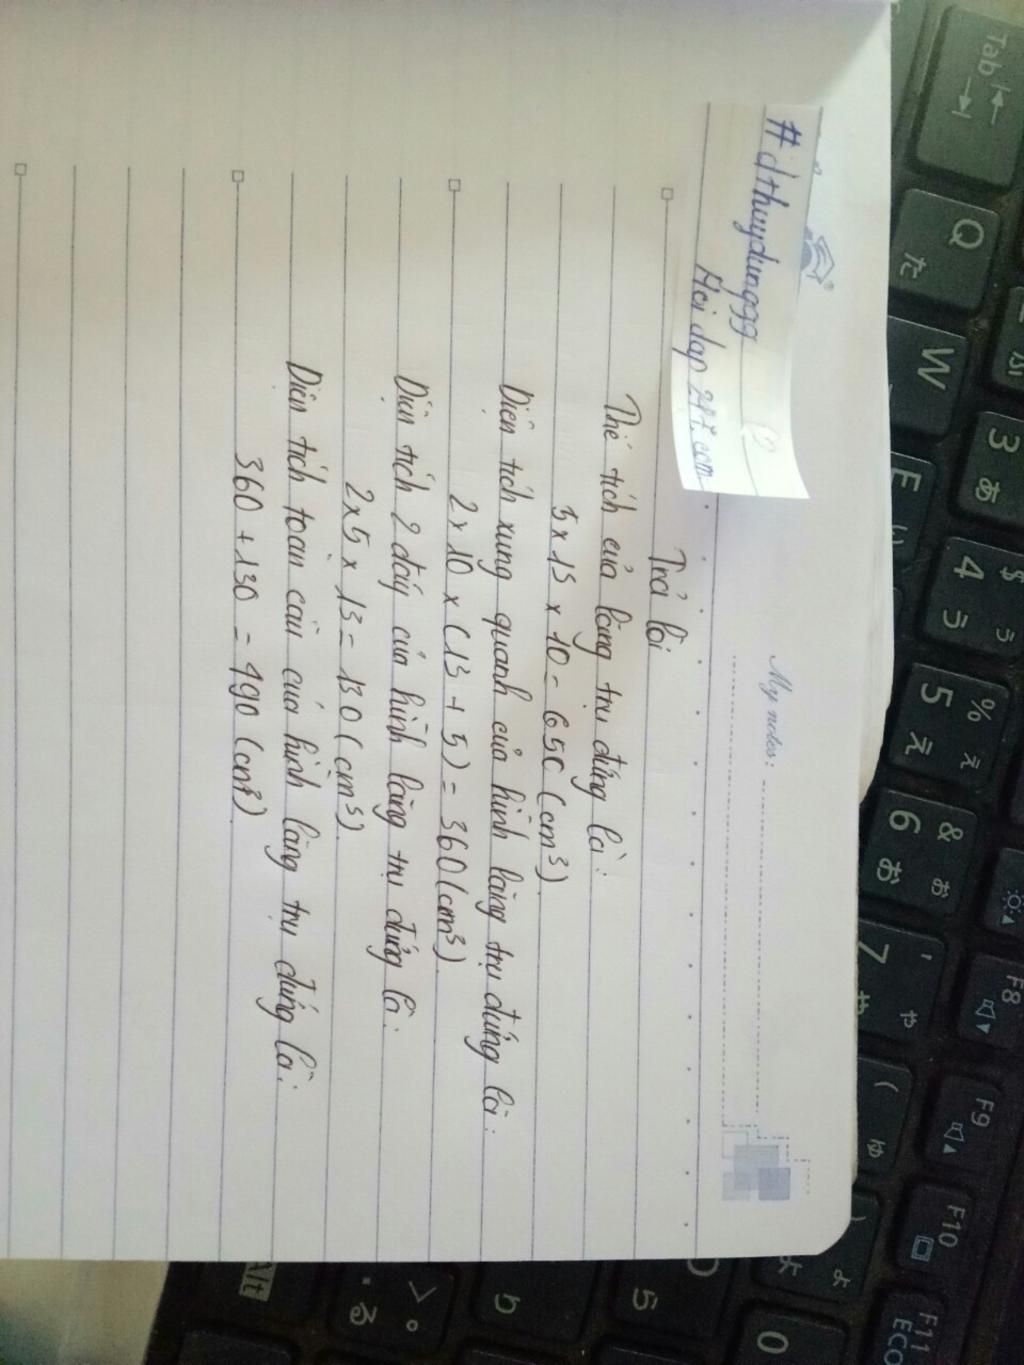 #dthuydungggg
Hoi dap 247.com
My notes:
Trả lời
Thể tích của lăng trụ đứng là:
5 x 13 x 10 = 650 (cm³)
Diện tích xung quanh của hình lăng trụ đứng là:
2 x 10 x (13 + 5) = 360 (cm³)
Diện tích 2 đáy của hình lăng trụ đứng là:
2 x 5 x 13 = 130 (cm³)
Diện tích toàn cần của hình lăng trụ đứng là:
360 + 130 = 490 (cm³)
Tab
Q た
W
E
3 あ
$ 4 う
% 5 え
& 6 お
' 7 や
( ゆ
) よ
0
F8
F9
F10
F11
ECO
Alt